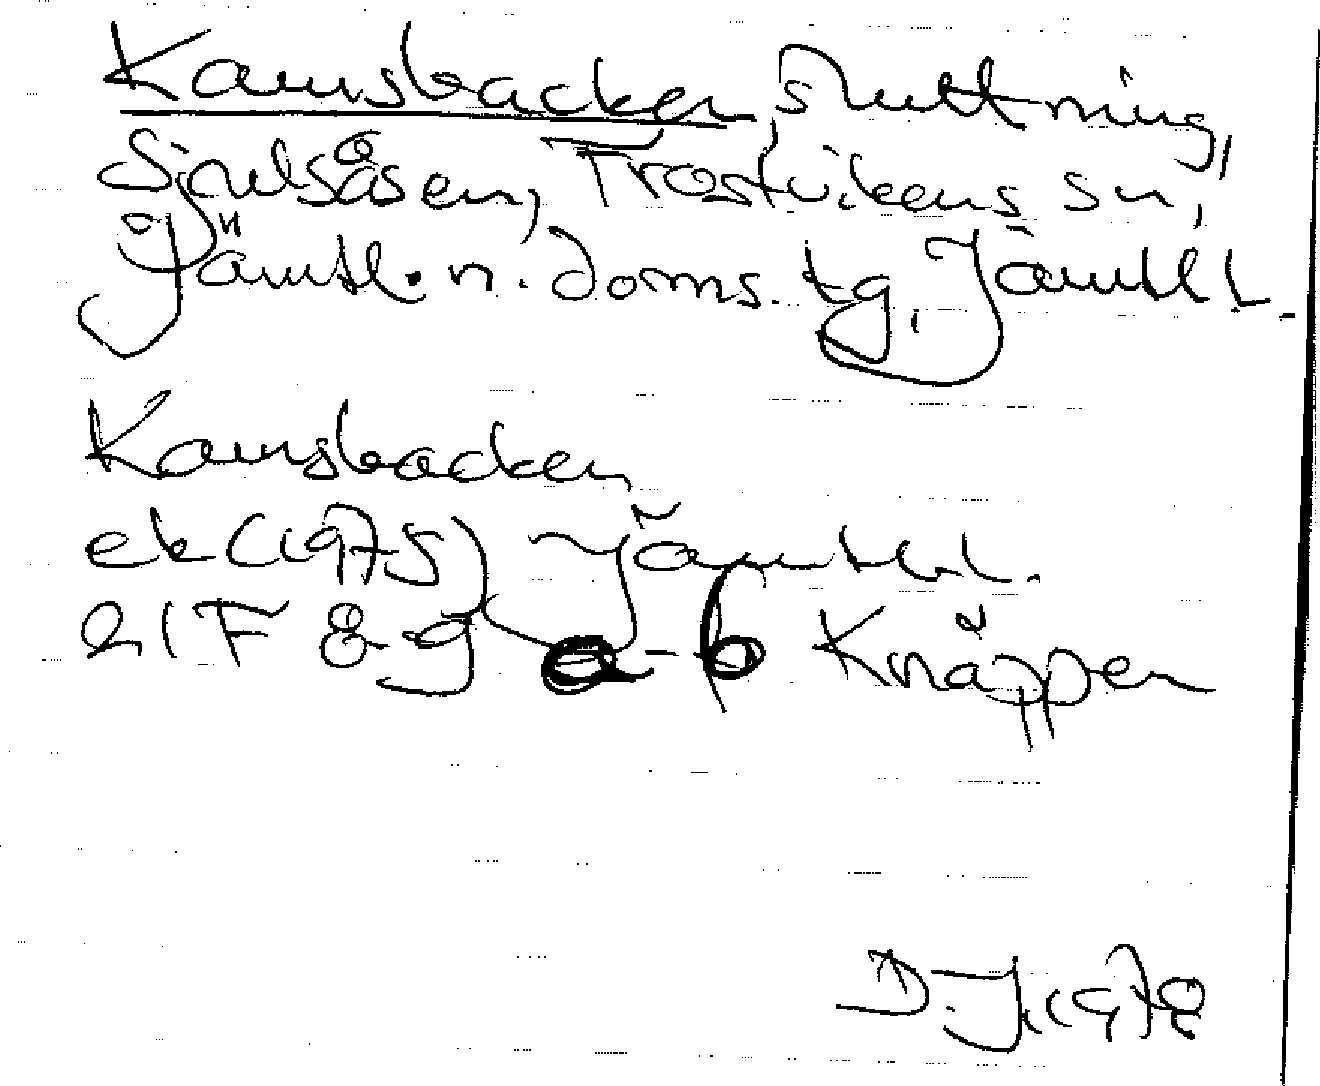 Kamsbacken sluttning,
Sjulsåsen, Frostvikens sn,
Jämtl. n. doms. tg, Jämtl l.
Kamsbacken
ek (1975) Jämtl.l.
21F 8-9 a-b Knäppen
D.J. 1978